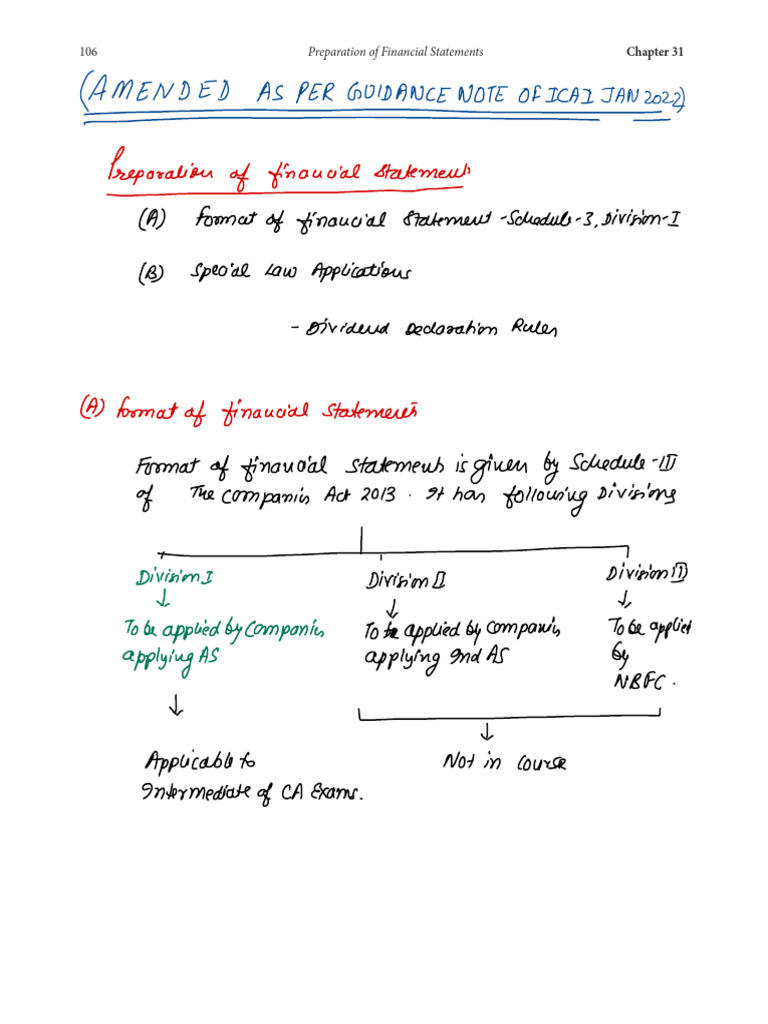 106 Preparation of Financial Statements Chapter 31
(AMENDED AS PER GUIDANCE NOTE OF ICAI JAN 2022)
Preparation of financial Statements
(A) Format of financial Statement -Schedule-3, Division-I
(B) Special Law Applications
- Dividend Declaration Rules
(A) Format of financial Statements
Format of financial Statements is given by Schedule-III
of The Companies Act 2013. It has following Divisions
Division I Division II Division III
To be applied by Companies To be applied by Companies To be applied
applying AS applying Ind AS by
NBFC.
Applicable to Not in course
Intermediate of CA Exams.